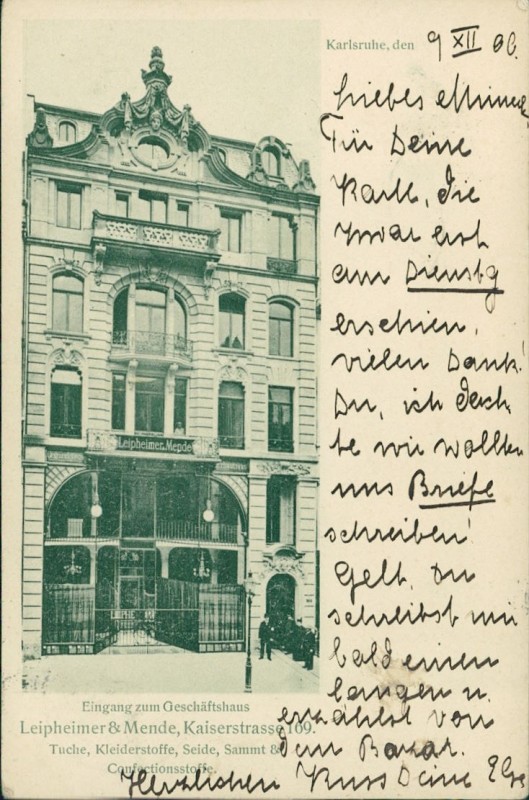 Karlsruhe, den 9 XII 00.
Liebes Mimele
Für Deine
Karte, die
zwar erst
am Dienstg
erschien,
vielen Dank!
Du, ich dach-
te wir wollten
uns Briefe
schreiben!
Gelt, Du
schreibst mir
bald einen
langen u.
erzählst von
dem Bazar.
Herzlichen Kuss Deine Else
Leipheimer & Mende
Eingang zum Geschäftshaus
Leipheimer & Mende, Kaiserstrasse 169.
Tuche, Kleiderstoffe, Seide, Sammt &
Confectionsstoffe.